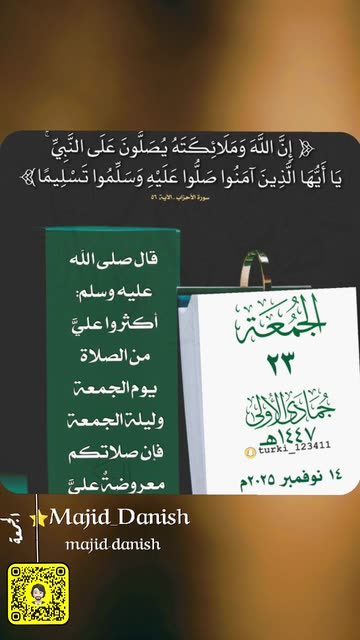 ﴿ إِنَّ اللَّهَ وَمَلَائِكَتَهُ يُصَلُّونَ عَلَى النَّبِيِّ ۚ
يَا أَيُّهَا الَّذِينَ آمَنُوا صَلُّوا عَلَيْهِ وَسَلِّمُوا تَسْلِيمًا ﴾
سورة الأحزاب ..الآية ٥٦
قال صلى الله
عليه وسلم:
أكثروا عليَّ
من الصلاة
يوم الجمعة
وليلة الجمعة
فإن صلاتكم
معروضةٌ عليَّ
الجُمعَة
٢٣
جُمادى الأولى
١٤٤٧هـ
turki_123411
١٤ نوفمبر ٢٠٢٥م
الجمعة
Majid_Danish
majid danish